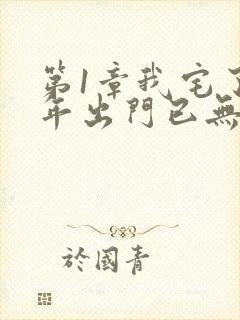 第1章我宅了
年出門已無
於國青